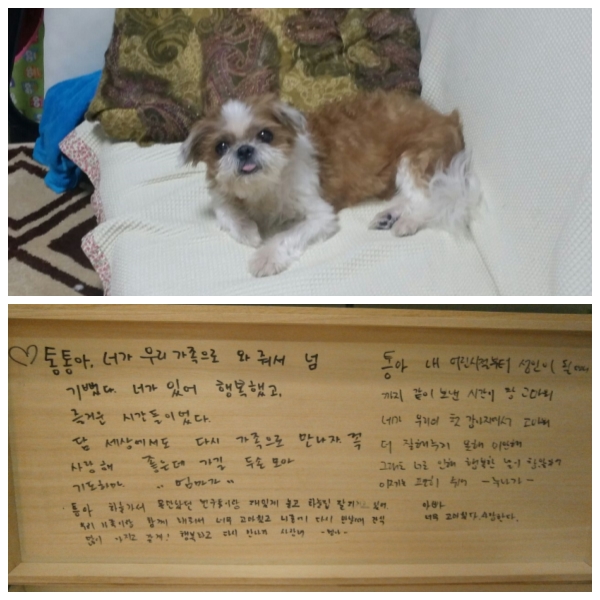 ♡통통아, 너가 우리 가족으로 와 줘서 넘
기뻤다. 너가 있어 행복했고,
즐거운 시간들이었다.
담 세상에서도 다시 가족으로 만나자. 꼭
사랑해 좋은데 가길 두손 모아
기도하마. "엄마가"
통아 내 어린시절부터 성인이 될
까지 같이 보낸 시간이 참
네가 우리의 첫 강아지여서 고마워
더 잘해주지 못해 미안해
그래도 너로 인해 행복한
이제는 편히 쉬어 -누나가-
통아 하늘가서 친구들이랑 재밌게 놀고
우리 가족이랑 함께 너무 고마웠고 다시
행복하고 다시 만나자 사랑해
아빠가
너무 고마웠다. 사랑한다.